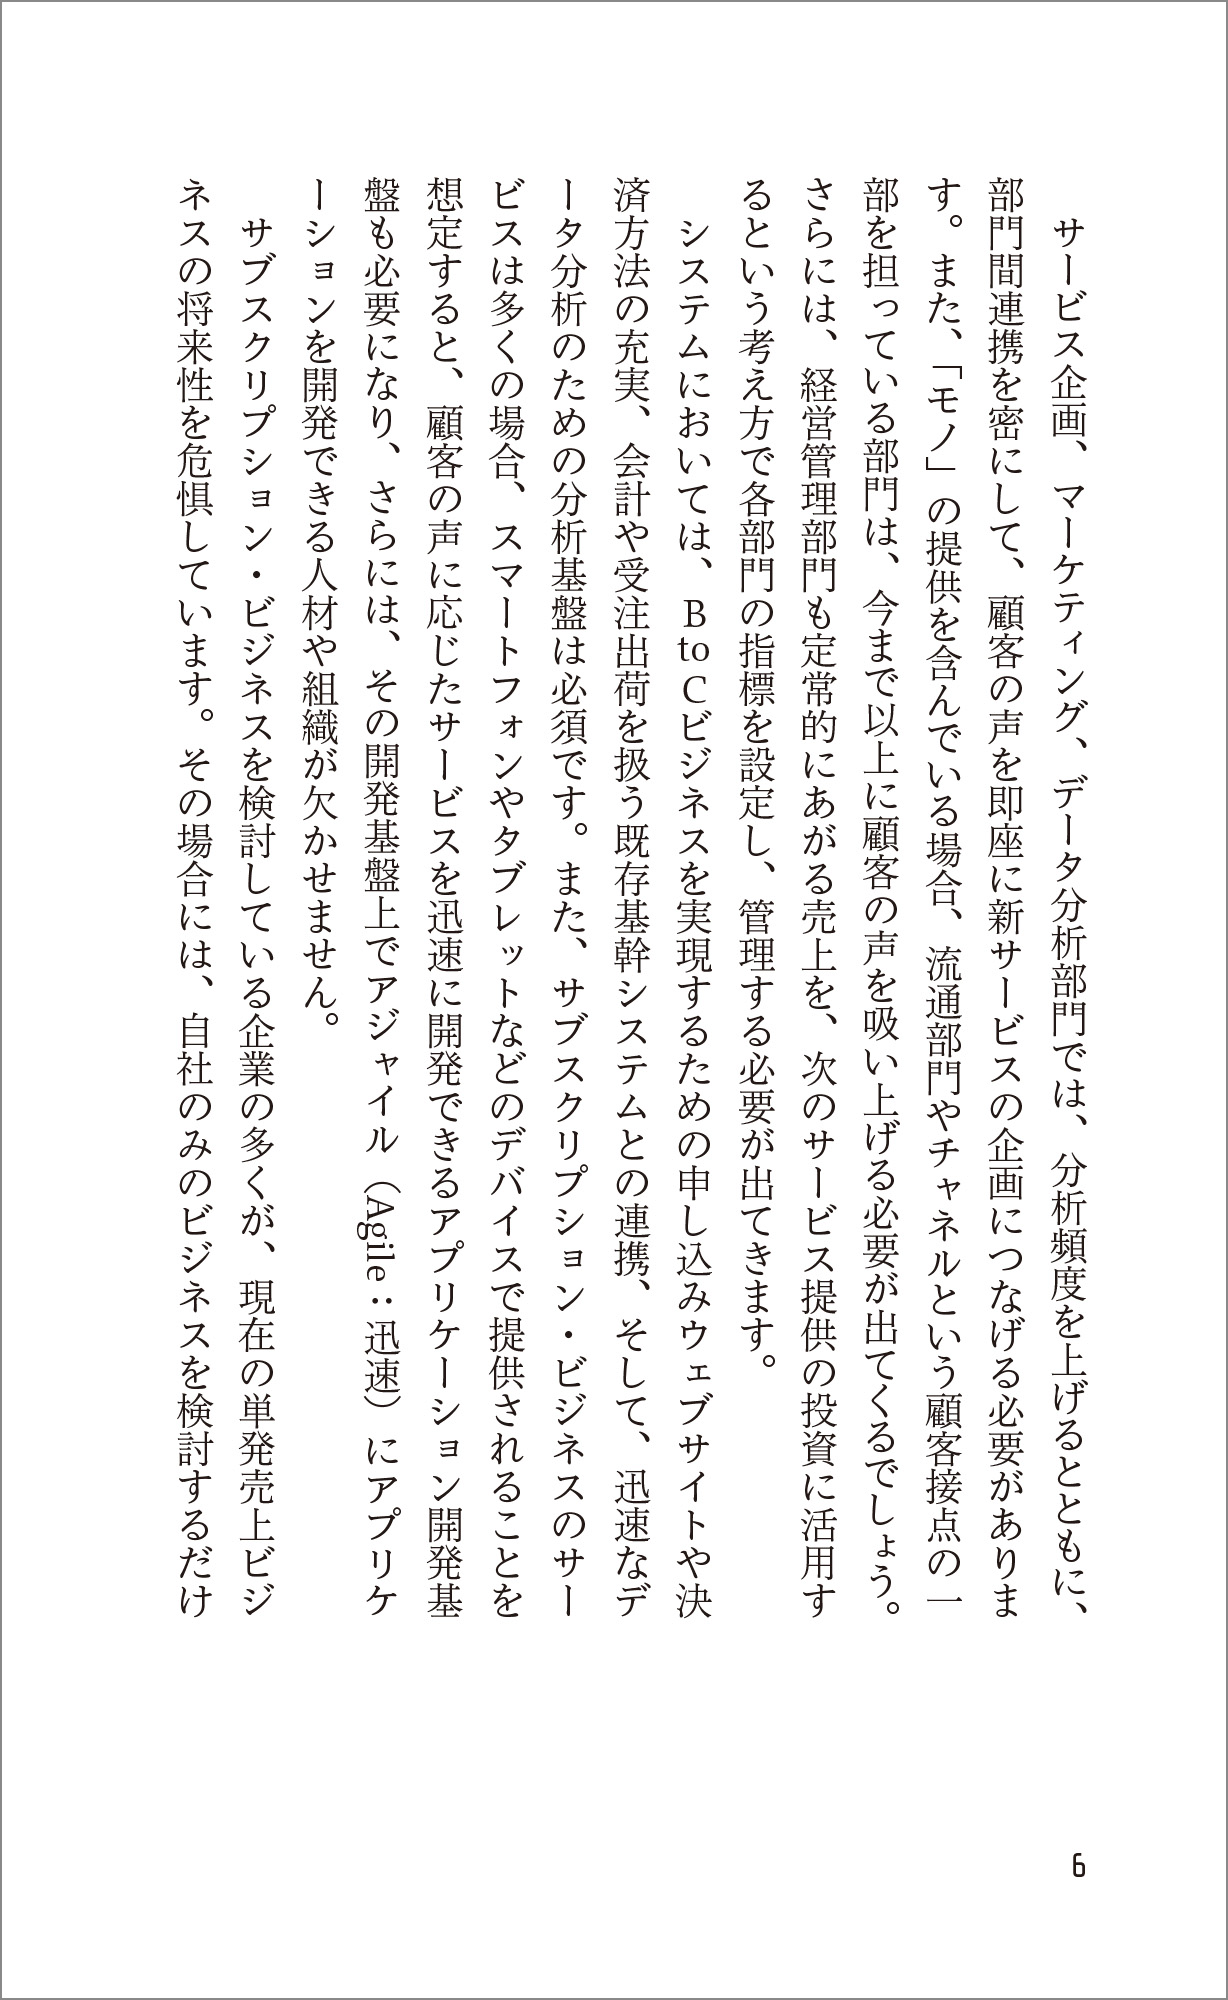 サービス企画、マーケティング、データ分析部門では、分析頻度を上げるとともに、
部門間連携を密にして、顧客の声を即座に新サービスの企画につなげる必要がありま
す。また、「モノ」の提供を含んでいる場合、流通部門やチャネルという顧客接点の一
部を担っている部門は、今まで以上に顧客の声を吸い上げる必要が出てくるでしょう。
さらには、経営管理部門も定常的にあがる売上を、次のサービス提供の投資に活用す
るという考え方で各部門の指標を設定し、管理する必要が出てきます。
　システムにおいては、B to Cビジネスを実現するための申し込みウェブサイトや決
済方法の充実、会計や受注出荷を扱う既存基幹システムとの連携、そして、迅速なデ
ータ分析のための分析基盤は必須です。また、サブスクリプション・ビジネスのサー
ビスは多くの場合、スマートフォンやタブレットなどのデバイスで提供されることを
想定すると、顧客の声に応じたサービスを迅速に開発できるアプリケーション開発基
盤も必要になり、さらには、その開発基盤上でアジャイル（Agile：迅速）にアプリケ
ーションを開発できる人材や組織が欠かせません。
　サブスクリプション・ビジネスを検討している企業の多くが、現在の単発売上ビジ
ネスの将来性を危惧しています。その場合には、自社のみのビジネスを検討するだけ
6